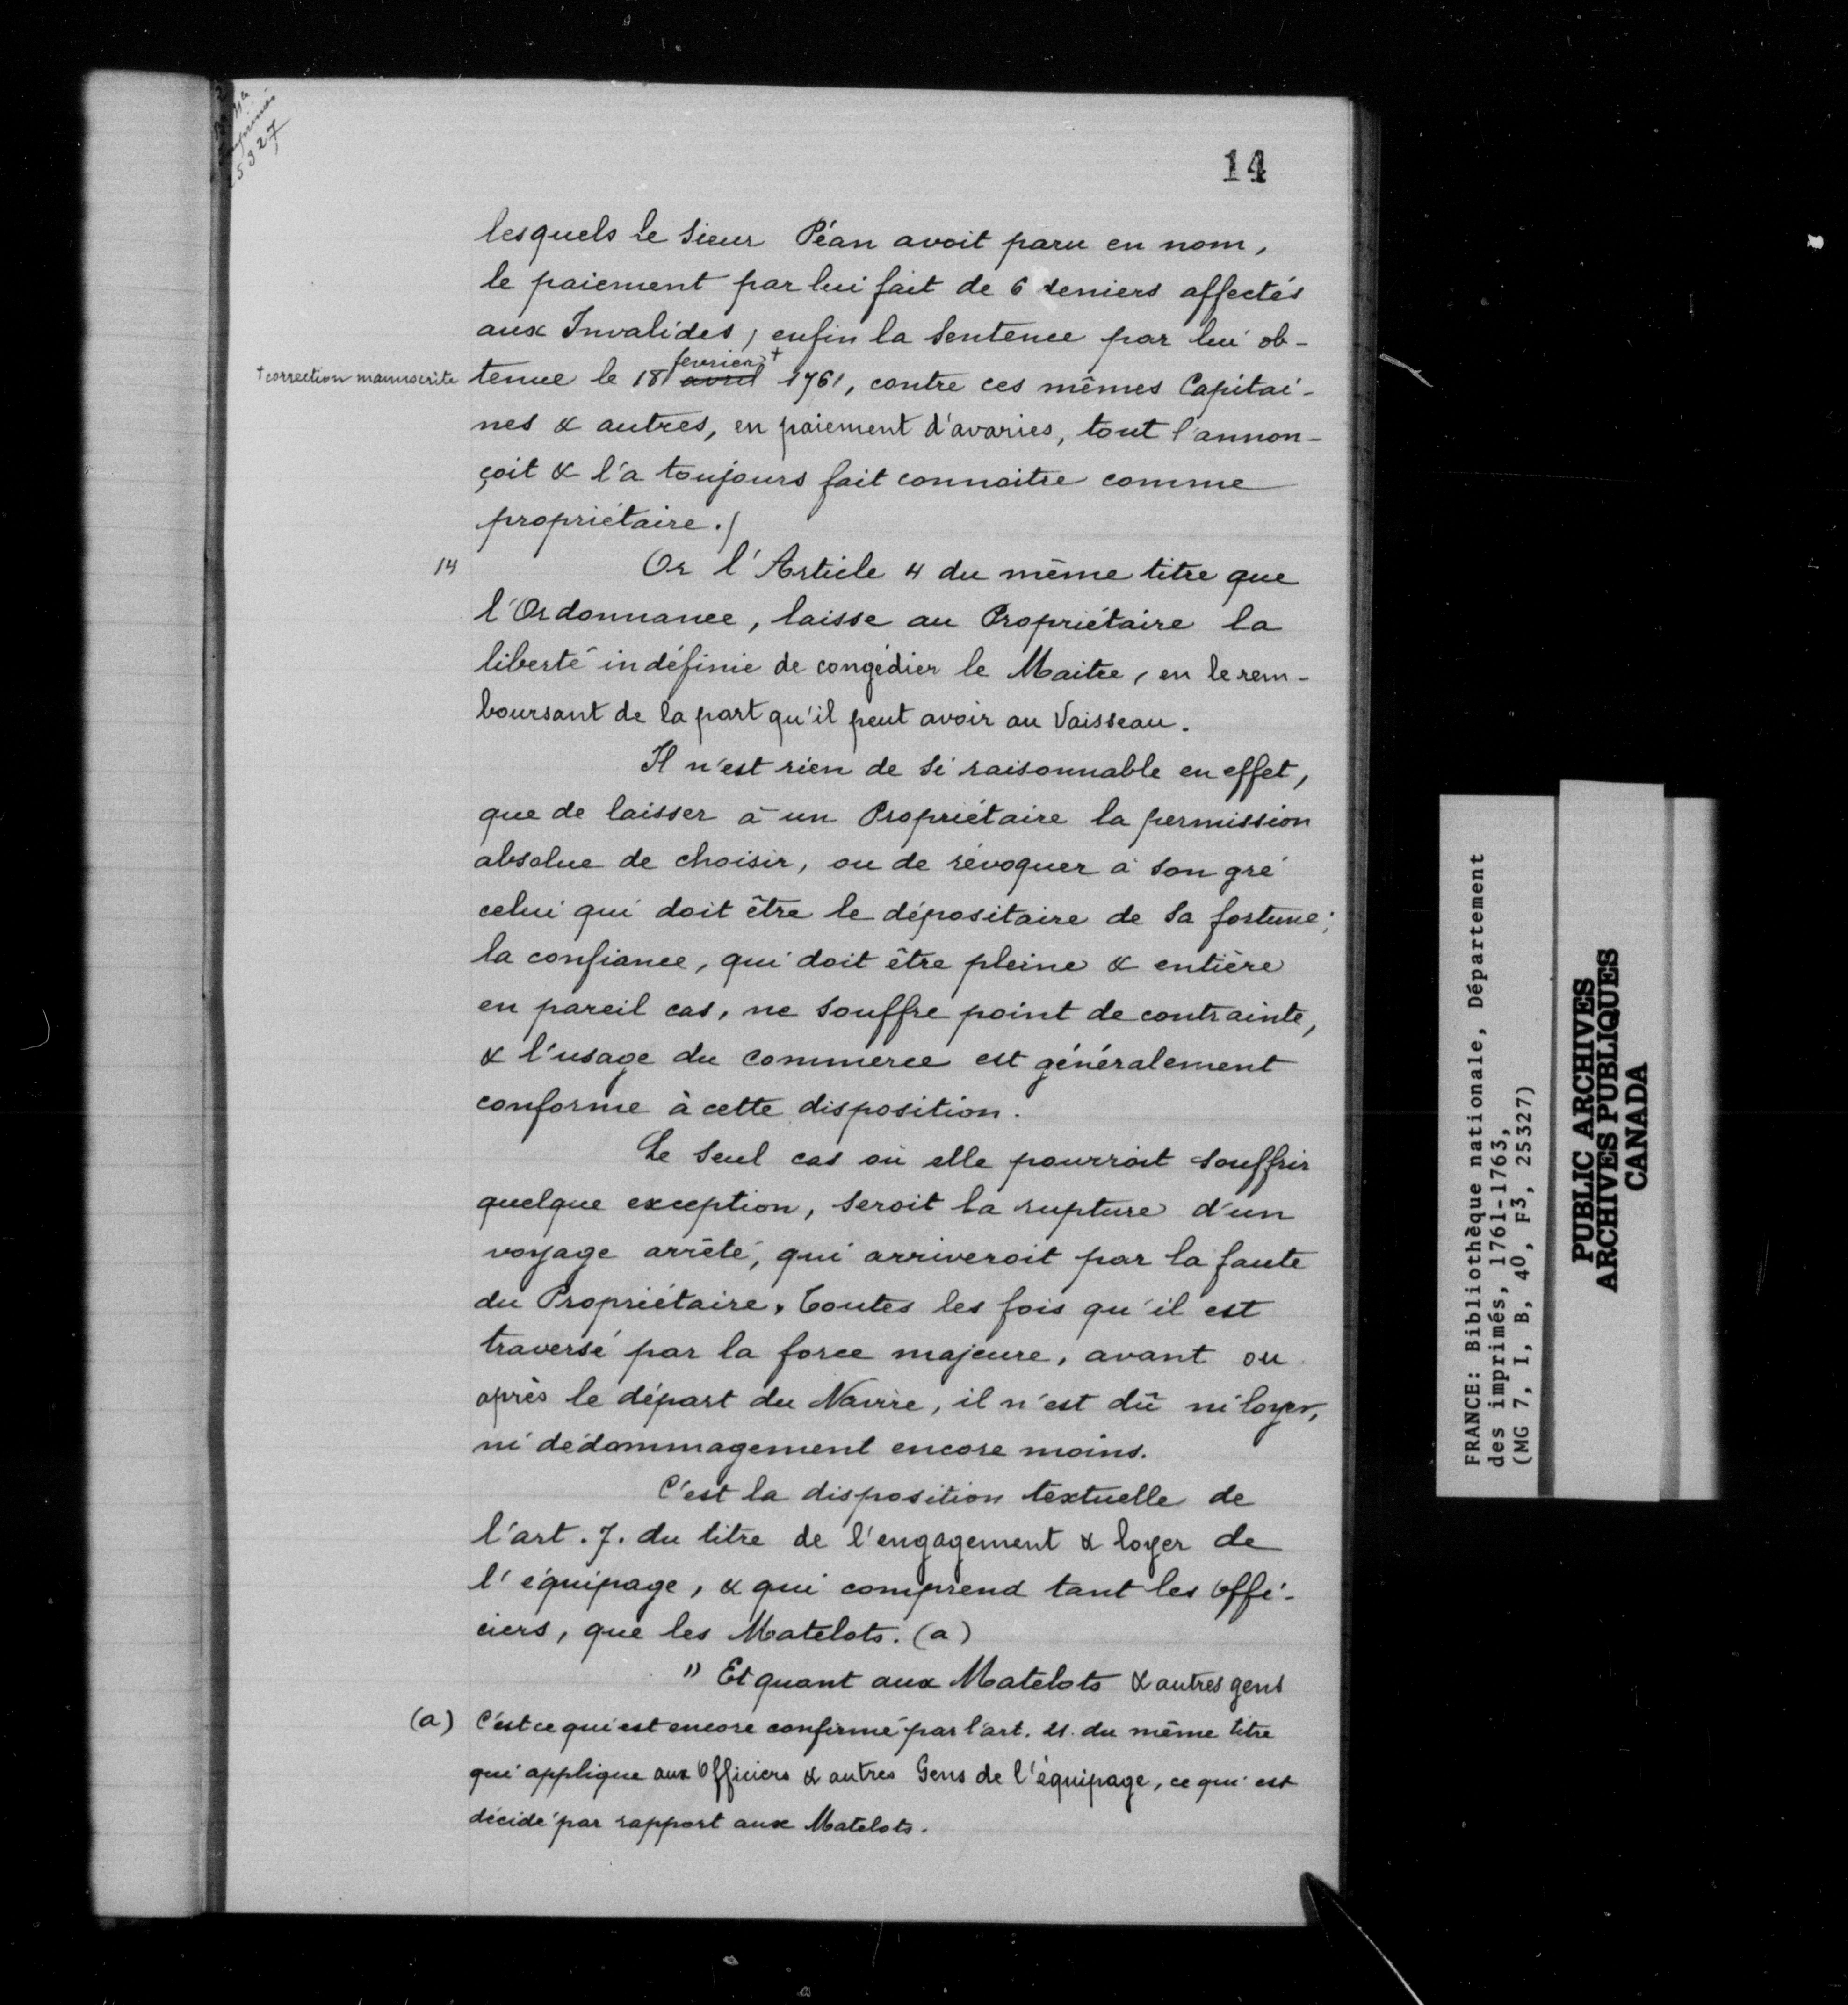 Imprimés
25327
14
lesquels le Sieur Péan avoit paru en nom,
le paiement par lui fait de 6 deniers affectés
aux Invalides, enfin la Sentence par lui ob-
fevrier +
+ correction manuscrite tenue le 18 avril 1761, contre ces mêmes Capitai-
nes & autres, en paiement d'avaries, tout l'annon-
çoit & l'a toujours fait connaitre comme
propriétaire./
14 Or l'Article 4 du même titre que
l'Ordonnance, laisse au Propriétaire la
liberté indéfinie de congédier le Maitre, en le rem-
boursant de la part qu'il peut avoir au Vaisseau.
Il n'est rien de si raisonnable en effet,
que de laisser à un Propriétaire la permission
absolue de choisir, ou de révoquer à son gré
celui qui doit être le dépositaire de sa fortune;
la confiance, qui doit être pleine & entière
en pareil cas, ne souffre point de contrainte,
& l'usage du commerce est généralement
conforme à cette disposition.
Le seul cas où elle pourroit souffrir
quelque exception, seroit la rupture d'un
voyage arrêté, qui arriveroit par la faute
du Propriétaire. Toutes les fois qu'il est
traversé par la force majeure, avant ou
après le départ du Navire, il n'est dû ni loyer,
ni dédommagement encore moins.
C'est la disposition textuelle de
l'art. 7. du titre de l'engagement & loyer de
l'équipage, & qui comprend tant les Offi-
ciers, que les Matelots. (a)
" Et quant aux Matelots & autres gens
(a) C'est ce qui est encore confirmé par l'art. 21. du même titre
qui applique aux Officiers & autres Gens de l'équipage, ce qui est
décidé par rapport aux Matelots.
FRANCE: Bibliothèque nationale, Département
des imprimés, 1761-1763,
(MG 7, I, B, 40, F3, 25327)
PUBLIC ARCHIVES
ARCHIVES PUBLIQUES
CANADA